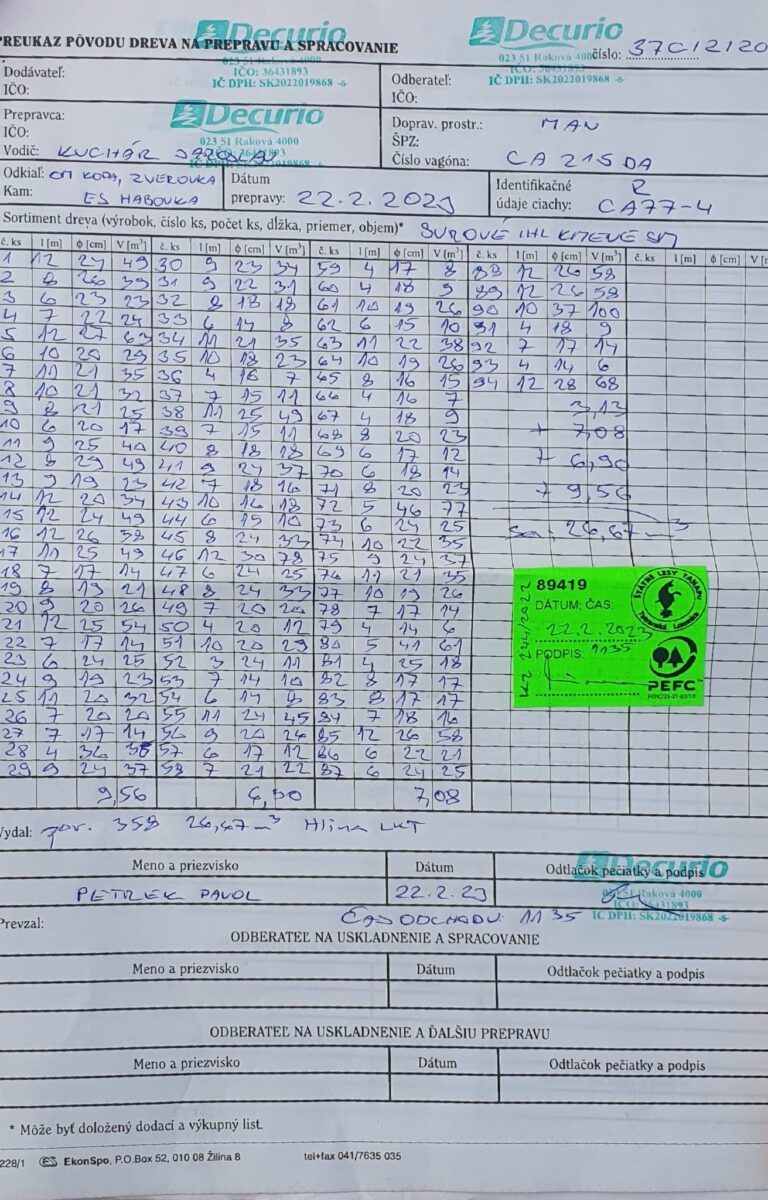 PREUKAZ PÔVODU DREVA NA PREPRAVU A SPRACOVANIE
Decurio
023 51 Raková 4000
IČO: 36431893
IČ DPH: SK2022019868 -8-
Decurio
023 51 Raková 400
číslo: 370/2/20
IČO: 36431893
IČ DPH: SK2022019868 -8-
Dodávateľ:
IČO:
Odberateľ:
IČO:
Prepravca:
IČO:
Vodič: KUCHÁR JAROSLAV
Decurio
023 51 Raková 4000
Doprav. prostr.: MAN
ŠPZ:
Číslo vagóna: CA 215 DA
Odkiaľ: OM KOPA, ZVEROVKA
Kam: ES HABOVKA
Dátum
prepravy: 22.2.2023
Identifikačné R
údaje ciachy: CA77-4
Sortiment dreva (výrobok, číslo ks, počet ks, dĺžka, priemer, objem)* SUROVÉ IHL KMENE SM
č. ks l [m] ϕ [cm] V [m³] č. ks l [m] ϕ [cm] V [m³] č. ks l [m] ϕ [cm] V [m³] č. ks l [m] ϕ [cm] V [m³] č. ks l [m] ϕ [cm] V [m
1 12 24 49 30 9 23 34 59 4 17 8 88 12 26 58
2 8 26 39 31 9 22 31 60 4 18 9 89 12 26 58
3 6 23 23 32 8 18 18 61 10 19 26 90 10 37 100
4 7 22 24 33 6 14 8 62 6 15 10 91 4 18 9
5 12 27 63 34 11 21 35 63 11 22 38 92 7 17 14
6 10 20 29 35 10 18 23 64 10 19 26 93 4 14 6
7 11 21 35 36 4 16 7 65 8 16 15 94 12 28 68
8 10 21 32 37 7 15 11 66 4 16 7 3,13
9 8 21 25 38 11 25 49 67 4 18 9 + 7,08
10 6 20 17 39 7 15 11 68 8 20 23
11 9 25 40 40 8 18 18 69 6 17 12 + 6,90
12 8 29 49 41 9 24 37 70 6 18 14
13 9 19 23 42 7 18 16 71 8 20 23 + 9,56
14 12 20 34 43 10 16 18 72 5 46 77
15 12 24 49 44 6 15 10 73 6 24 25 sa: 26,67 m³
16 12 26 58 45 8 24 33 74 10 22 35
17 11 25 49 46 12 30 78 75 9 24 37
18 7 17 14 47 6 24 25 76 11 21 35
19 8 19 21 48 8 24 33 77 10 19 26
20 9 20 26 49 7 20 20 78 7 17 14
21 12 25 54 50 4 20 12 79 4 14 6
22 7 17 14 51 10 20 29 80 5 41 61
23 6 24 25 52 3 24 11 81 4 25 18
24 9 19 23 53 7 14 10 82 8 17 17
25 11 20 32 54 6 14 8 83 8 17 17
26 7 20 20 55 11 24 45 84 7 18 16
27 7 17 14 56 9 20 26 85 12 26 58
28 4 36 38 57 6 17 12 86 6 22 21
29 9 24 37 58 7 21 22 87 6 24 25
9,56 6,90 7,08
89419
DÁTUM, ČAS:
22.2.2023
PODPIS: 1135
KZ 244/2022
ŠTÁTNE LESY TANAPU
Tatranská Lomnica
PEFC
Vydal: por. 358 26,67 m³ Hlina LKT
Meno a priezvisko Dátum Odtlačok pečiatky a podpis
Decurio
PETREK PAVOL 22.2.23
023 51 Raková 4000
IČO: 36431893
IČ DPH: SK2022019868 -8-
Prevzal: ČAS ODCHODU: 11 35
ODBERATEĽ NA USKLADNENIE A SPRACOVANIE
Meno a priezvisko Dátum Odtlačok pečiatky a podpis
ODBERATEĽ NA USKLADNENIE A ĎALŠIU PREPRAVU
Meno a priezvisko Dátum Odtlačok pečiatky a podpis
* Môže byť doložený dodací a výkupný list.
228/1 ES EkonSpo, P.O.Box 52, 010 08 Žilina 8 tel+fax 041/7635 035